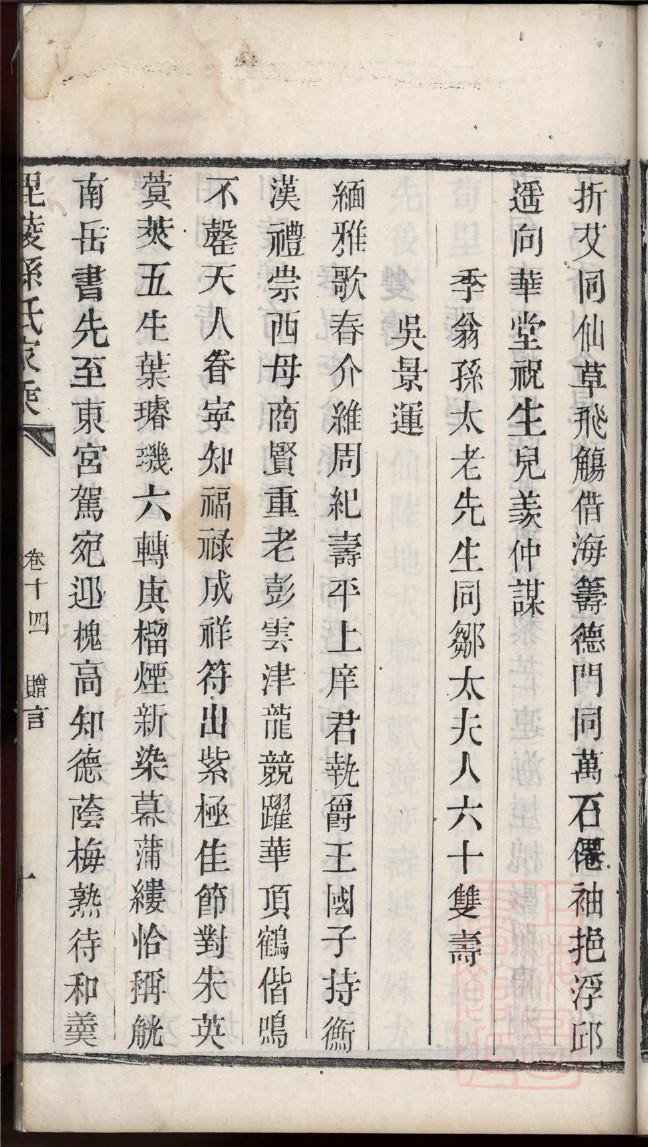 折艾同仙草飛觴借海籌德門同萬石僊袖挹浮邱
遥向華堂祝生兒羨仲謀
季翁孫太老先生同鄒太夫人六十雙壽
吳景運
緬雅歌春介維周紀壽平上庠君執爵王國子持衡
漢禮崇西母商賢重老彭雲津龍競躍華頂鶴偕鳴
不罄天人眷寕知福禄成祥符出紫極佳節對朱英
蓂莢五生葉璿璣六轉庚榴煙新染幕蒲縷恰稱觥
南岳書先至東宮駕宛迎槐高知德蔭梅熟待和羹
毘陵孫氏家乘
卷十四
贈言